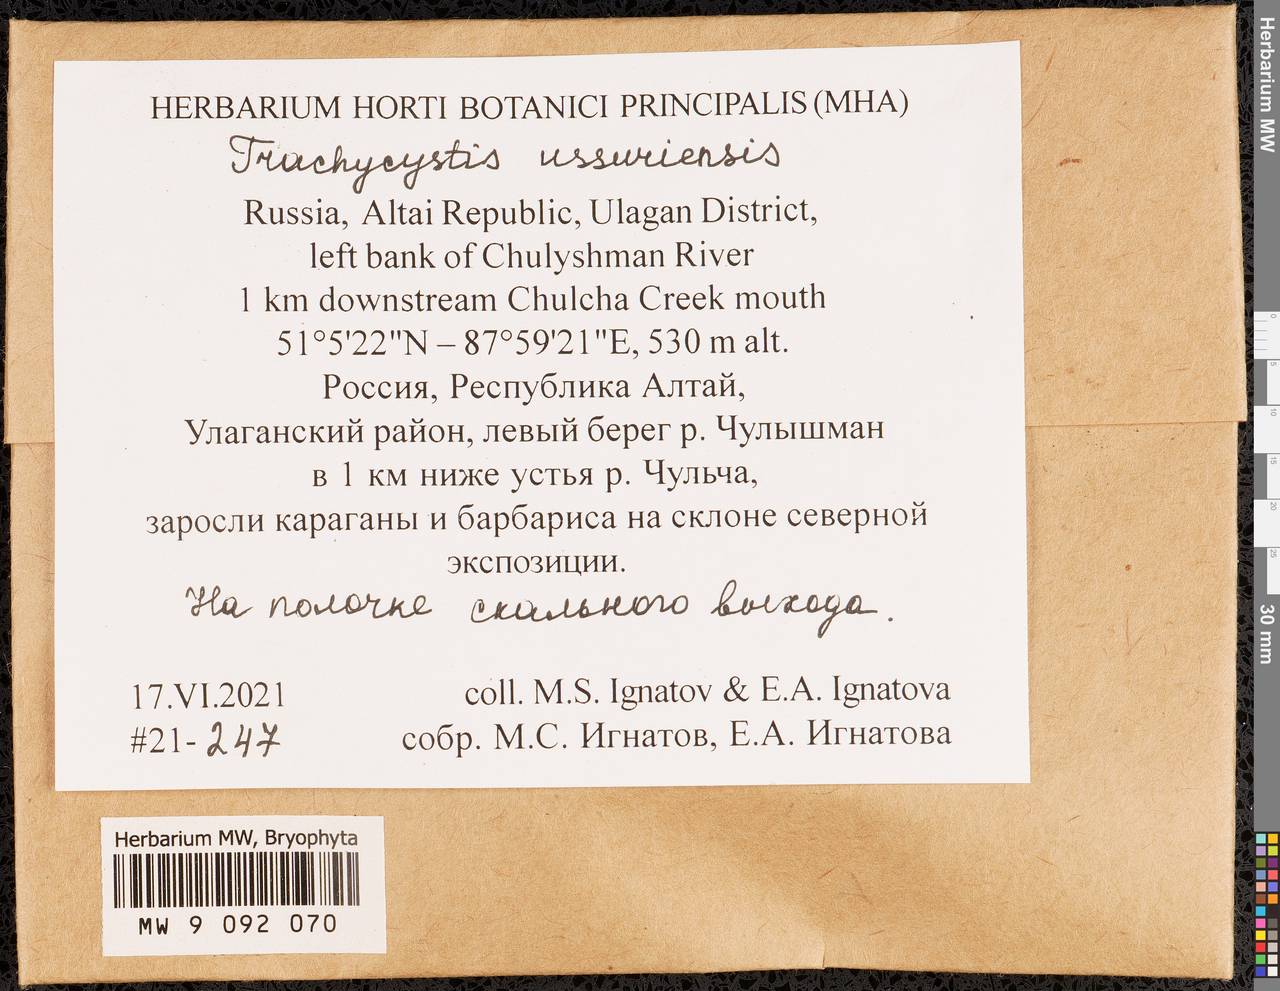 HERBARIUM HORTI BOTANICI PRINCIPALIS (MHA)
Trachycystis ussuriensis
Russia, Altai Republic, Ulagan District,
left bank of Chulyshman River
1 km downstream Chulcha Creek mouth
51°5'22"N – 87°59'21"E, 530 m alt.
Россия, Республика Алтай,
Улаганский район, левый берег р. Чулышман
в 1 км ниже устья р. Чульча,
заросли караганы и барбариса на склоне северной
экспозиции.
На полочке скального выхода.
17.VI.2021
coll. M.S. Ignatov & E.A. Ignatova
#21-247
собр. М.С. Игнатов, Е.А. Игнатова
Herbarium MW, Bryophyta
MW 9 092 070
Herbarium MW
0
5
10
15
20
25
30 mm